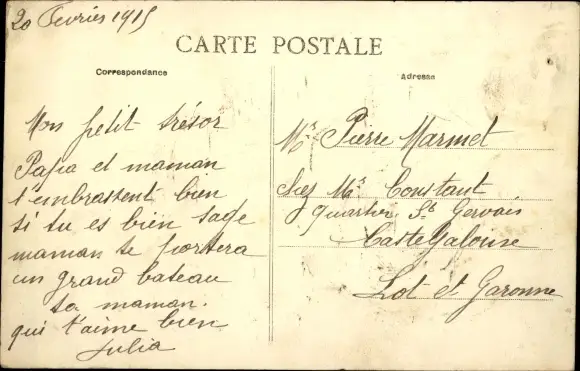 20 Fevrier 1915
CARTE POSTALE
Correspondance
Adresse
Mon petit trésor
Papa et maman
t'embrassent bien
si tu es bien sage
maman te portera
un grand bateau
ta maman.
qui t'aime bien
Julia
Mr Pierre Marmet
chez Mr Constant
quartier St Gervais
Castelgalouse
Lot et Garonne